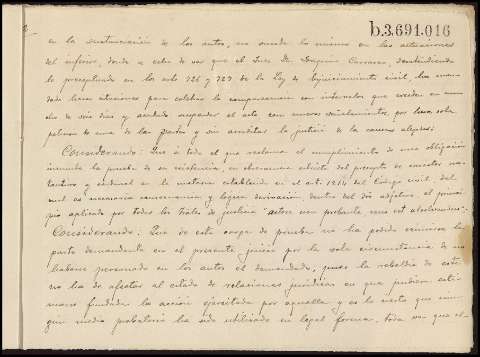 b.3.691.016
en la sustanciación de los autos, no sucede lo mismo en las actuaciones
del inferior, donde se echa de ver que el Juez Dn. Carrasco, desatendiendo
lo preceptuado en los arts 726 y 727 de la Ley de Enjuiciamiento civil, ha man-
dado librar citaciones para celebrar la comparecencia con intervalos que exceden en mu-
cho de seis días y acordado suspender el acto con nuevos señalamientos por leve sola
palabra de una de las partes y sin acreditar la justicia de la causa alguna:
Considerando: Que a todo el que reclama el cumplimiento de una obligación
incumbe la prueba de su existencia, en observancia estricta del precepto de caracter sus-
tantivo y cardinal en la materia establecido en el art. 1214 del Código civil del
cual es necesaria consecuencia y lógica derivación, dentro del dro adjetivo, el princi-
pio aplicado por todos los Trales de justicia "actore non probante, reus est absolvendus".
Considerando: Que de esta carga de prueba no ha podido eximirse la
parte demandante en el presente juicio por la sola circunstancia de no
haberse personado en los autos el demandado, pues la rebeldía de este
no ha de afectar al estado de relaciones jurídicas en que pudiera esti-
marse fundada la acción ejercitada por aquella y es lo cierto que nin-
gún medio probatorio ha sido utilizado en legal forma, toda vez que el